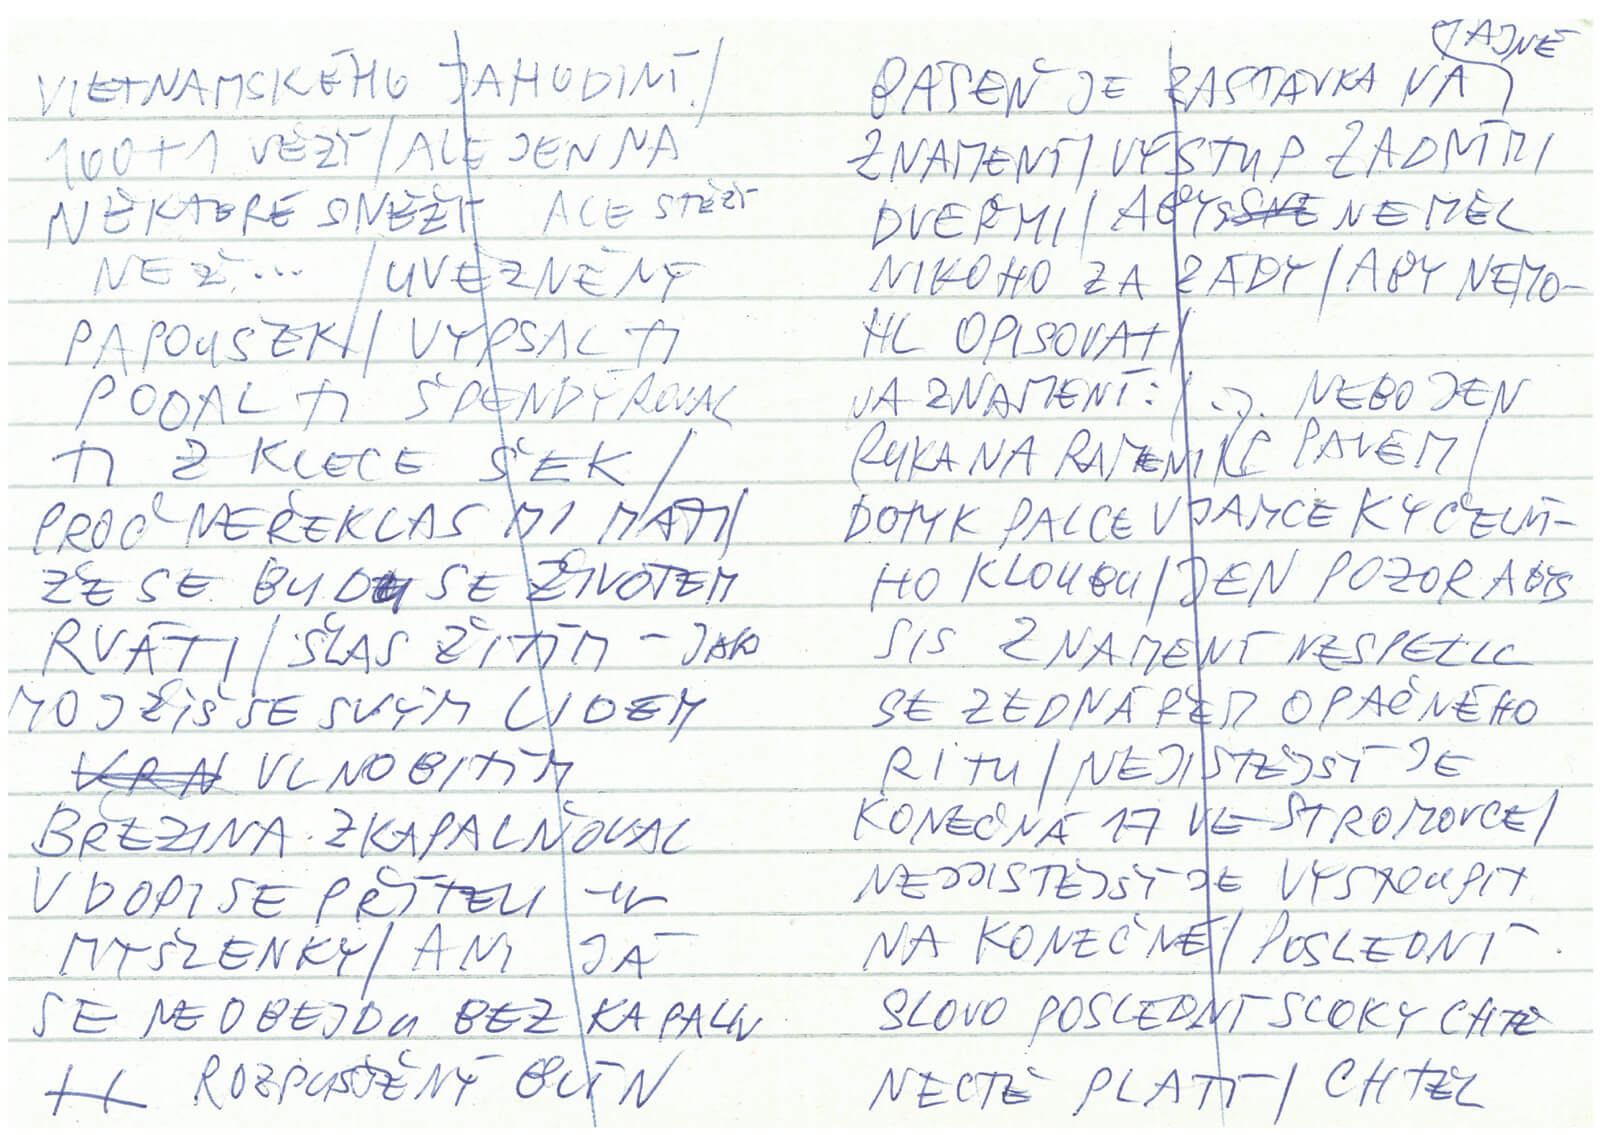 VIETNAMSKÉHO JAHODINÍ./
100+1 VĚŽÍ/ALE JEN NA
NĚKTERÉ SNĚŽÍ ALE STĚŽÍ
NEŽ... /UVĚZNĚNÝ
PAPOUŠEK/ VYPSAL TI
PODAL TI ŠPENDÝROVAL
TI Z KLECE ŠEK/
PROČ NEŘEKLAS MI MÁTI/
ŽE SE BUDU SE ŽIVOTEM
RVÁTI/ŠLAS ŽITÍM - JAKO
MOJŽÍŠ SE SVÝM LIDEM
VLNOBITÍM
BŘEZINA ZKAPALŇOVAL
V DOPISE PŘÍTELI
MYŠLENKY/ANI JÁ
SE NEOBEJDU BEZ KAPALIN
ROZPUŠTĚNÝ BLÍN
TAJNĚ
BÁSEŇ JE ZASTÁVKA NA
ZNAMENÍ/VÝSTUP ZADNÍMI
DVEŘMI/ABYS NEMĚL
NIKOHO ZA ZÁDY/ABY NEMO-
HL OPISOVAT/
NA ZNAMENÍ:/ .-). NEBO JEN
RUKA NA RAMENI PAVEM/
DOTYK PALCE V JAMCE KYČELNÍ-
HO KLOUBU/JEN POZOR ABYS
SIS ZNAMENÍ NESPLETL
SE ZEDNÁŘEM OPAČNÉHO
RITU/NEJISTĚJŠÍ JE
KONEČNÁ 17 VE STROMOVCE/
NEJJISTĚJŠÍ JE VYSTOUPIT
NA KONEČNÉ/POSLEDNÍ
SLOVO POSLEDNÍ SLOKY CHTĚ
NECHTĚ PLATÍ/CHTĚL